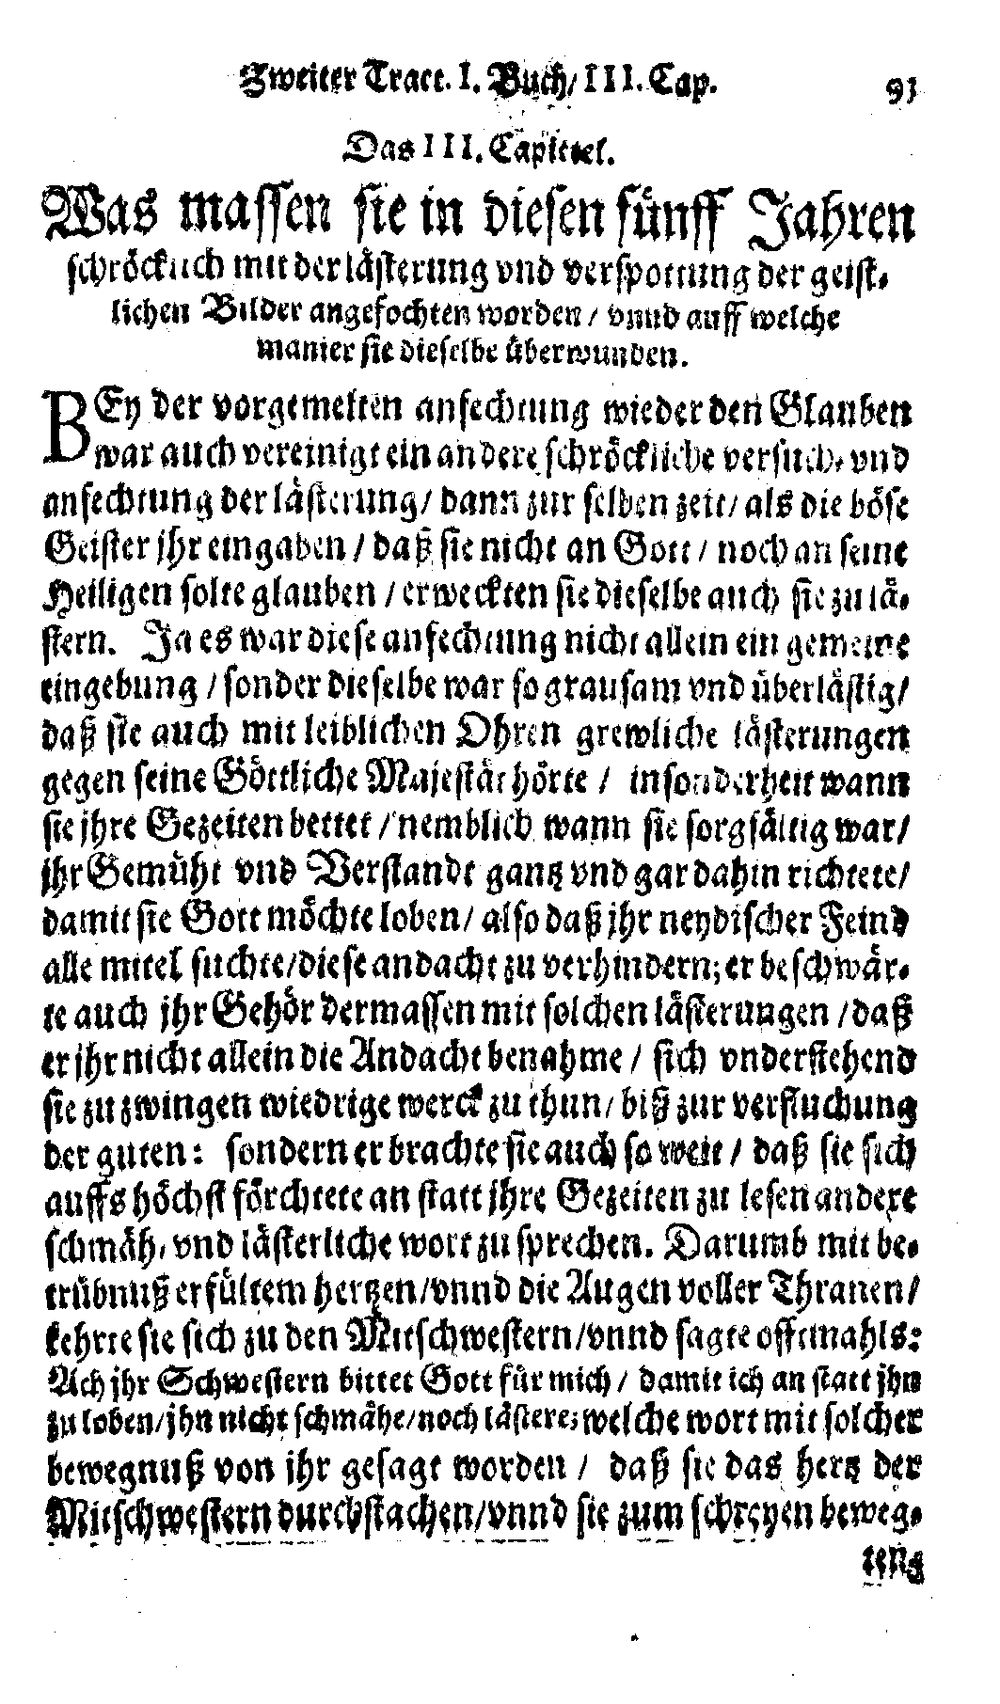 Zweiter Tract. I. Buch/ III. Cap. 93
Das III. Capittel.
Was massen sie in diesen fünff Jahren
schröcklich mit der lästerung vnd verspottung der geist-
lichen Bilder angefochten worden / vnnd auff welche
manier sie dieselbe überwunden.
BEy der vorgemelten anfechtung wieder den Glauben
war auch vereinigt ein andere schröckliche versuch- vnd
anfechtung der lästerung/ dann zur selben zeit/ als die böse
Geister jhr eingaben / daß sie nicht an Gott / noch an seine
Heiligen solte glauben / erweckten sie dieselbe auch sie zu lä-
stern. Ja es war diese anfechtung nicht allein ein gemeine
eingebung / sonder dieselbe war so grausam vnd überlästig/
daß sie auch mit leiblichen Ohren grewliche lästerungen
gegen seine Göttliche Majestät hörte / insonderheit wann
sie jhre Gezeiten bettet / nemblich wann sie sorgfältig war/
jhr Gemüht vnd Verstandt gantz vnd gar dahin richtete/
damit sie Gott möchte loben/ also daß jhr neydischer Feind
alle mitel suchte/diese andacht zu verhindern; er beschwär-
te auch jhr Gehör dermassen mit solchen lästerungen / daß
er jhr nicht allein die Andacht benahme / sich vnderstehend
sie zu zwingen wiedrige werck zu thun/ biß zur verfluchung
der guten: sondern er brachte sie auch so weit / daß sie sich
auffs höchst förchtete an statt jhre Gezeiten zu lesen andere
schmäh- vnd lästerliche wort zu sprechen. Darumb mit be-
trübnuß erfültem hertzen/vnnd die Augen voller Thranen/
kehrte sie sich zu den Mitschwestern/vnnd sagte offtmahls:
Ach jhr Schwestern bittet Gott für mich / damit ich an statt jhn
zu loben/jhn nicht schmähe/noch lästere; welche wort mit solcher
bewegnuß von jhr gesagt worden / daß sie das hertz der
Mitschwestern durchstachen/vnnd sie zum schreyen beweg-